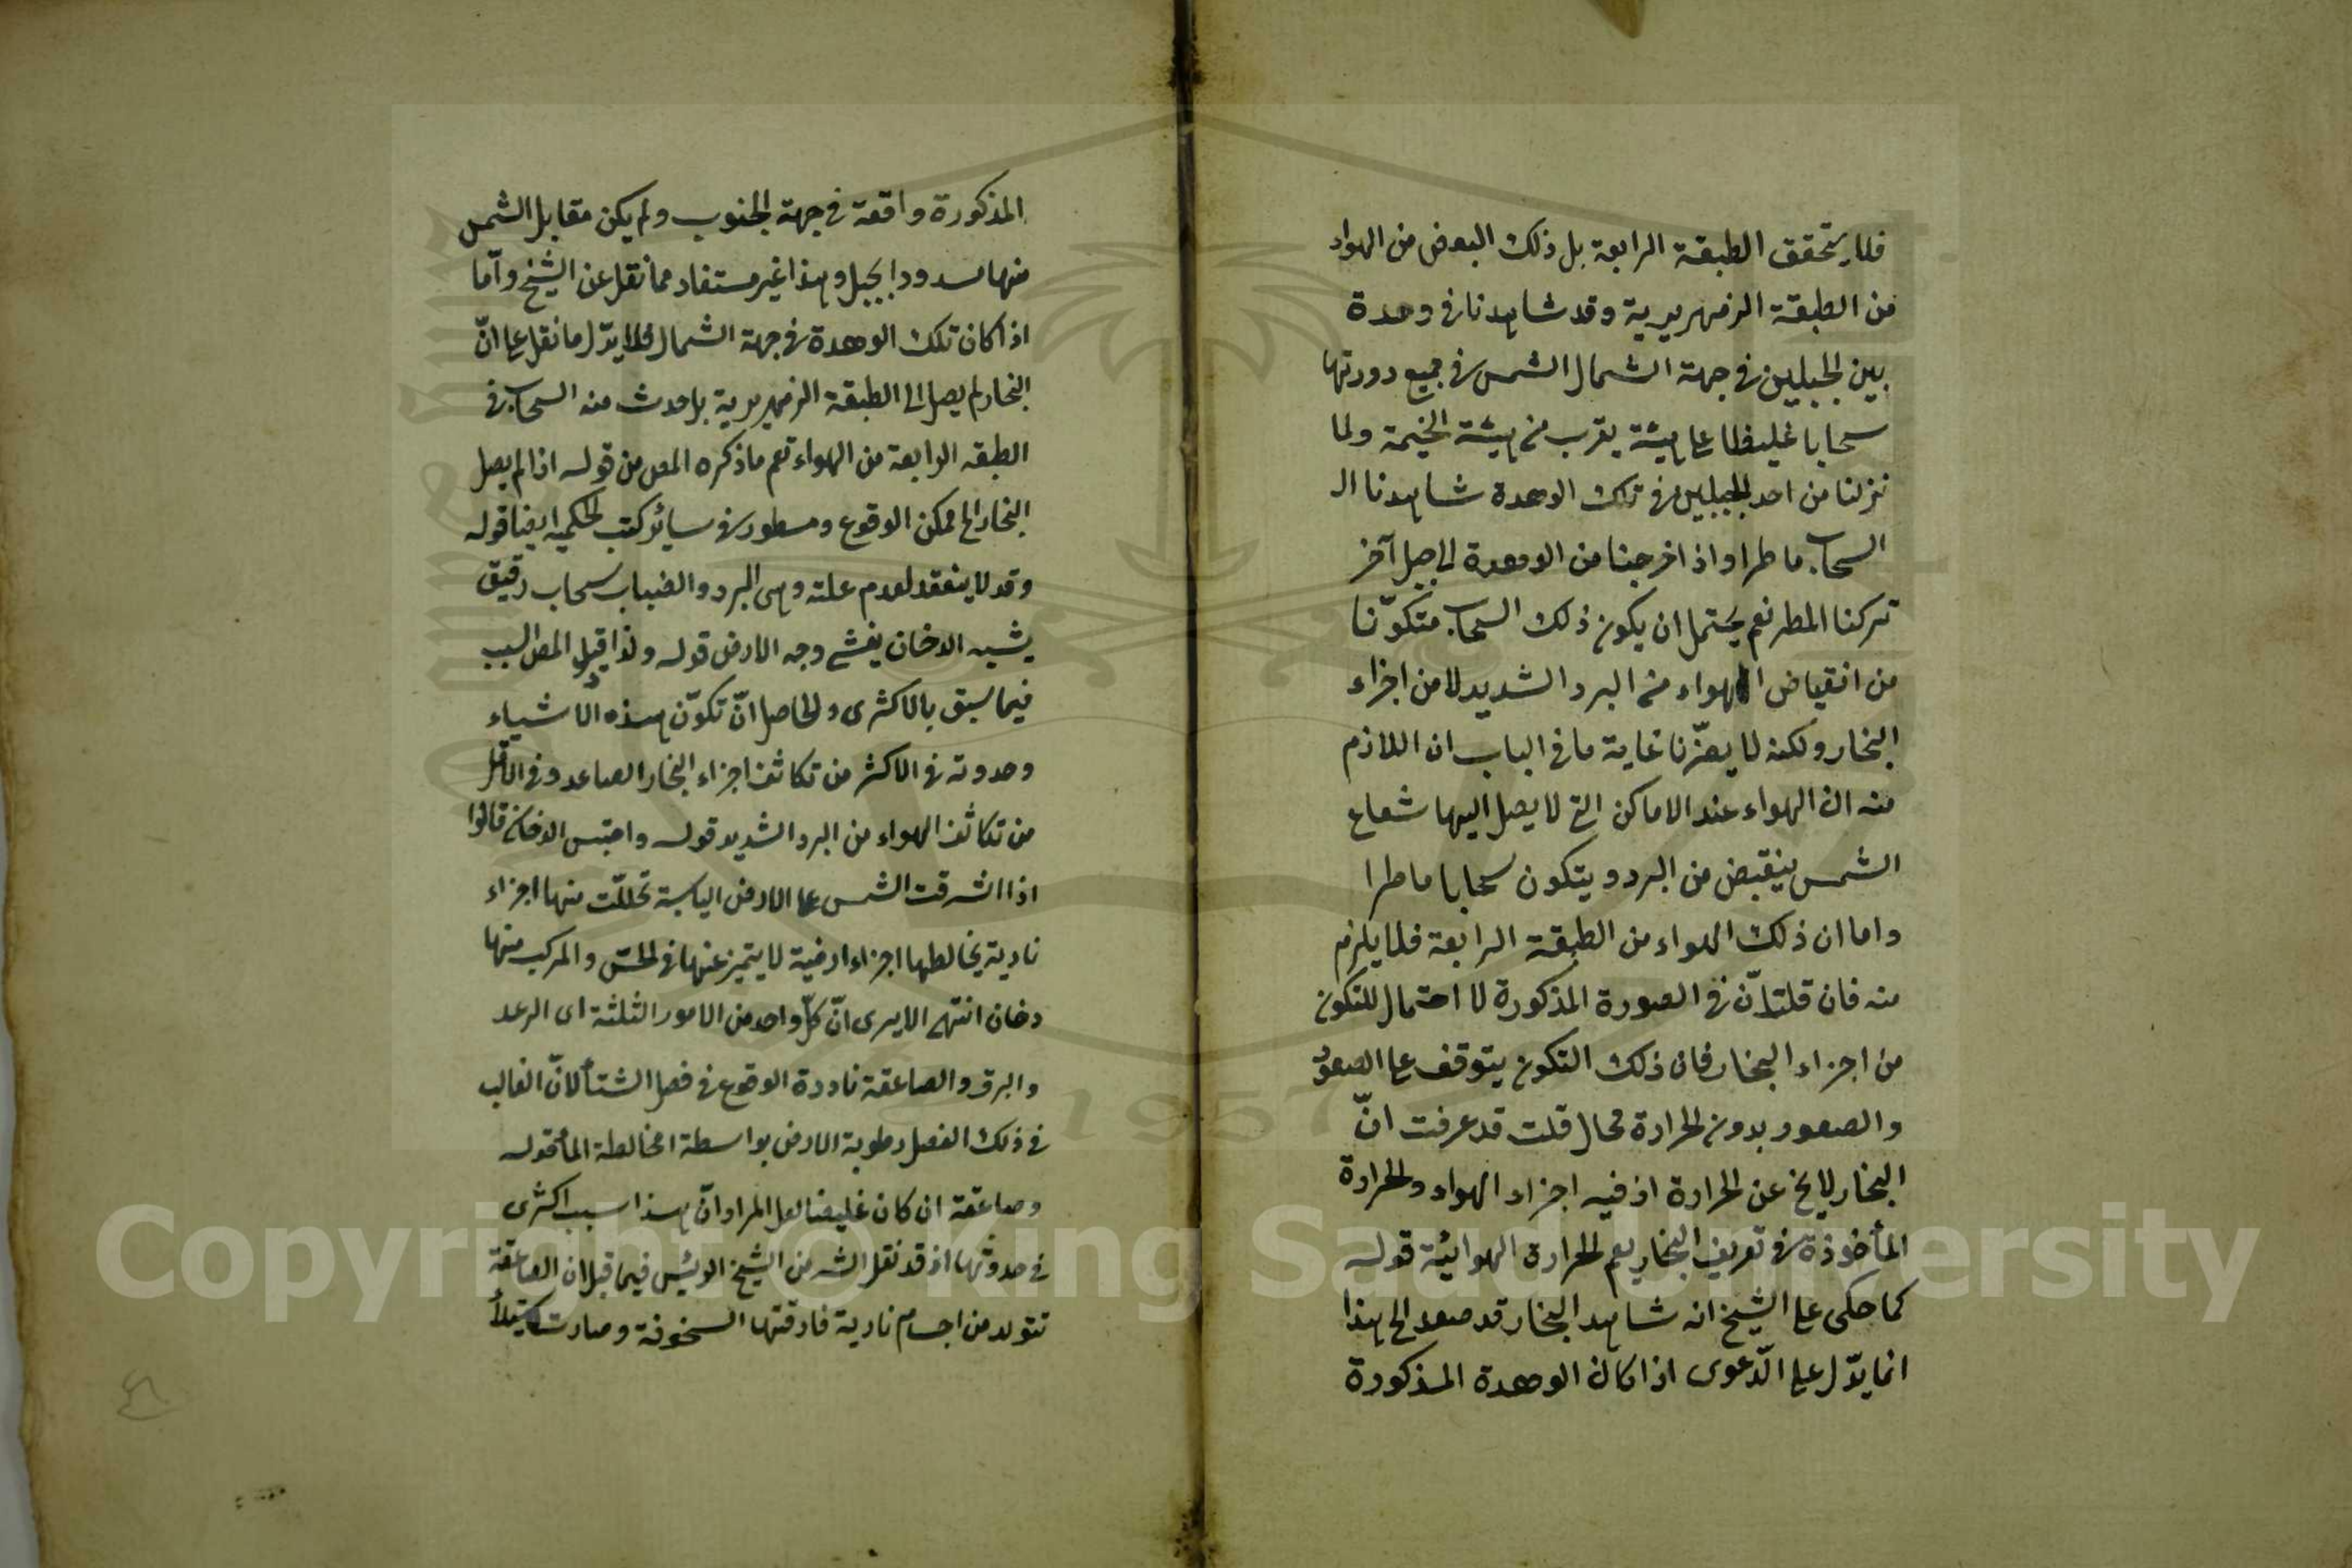 فلا يتحقق الطبقة الرابعة بل ذلك البعض من الهواء
من الطبقة الزمهريرية وقد شاهدنا في وهدة
بين الجبلين في جهة الشمال الشمس في جميع دورتها
سحابا غليظا على هيئة يقرب من هيئة الخيمة ولما
نزلنا من احد الجبلين في تلك الوهدة شاهدنا ال
السحاب ماطرا واذا خرجنا من الوهدة الى جبل آخر
تركنا المطر نعم يحتمل ان يكون ذلك السحاب متكوّنا
من انقباض الهواء من البرد الشديد لا من اجزاء
البخار ولكنه لا يضرّنا غاية ما في الباب ان اللازم
منه ان الهواء عند الاماكن التي لا يصل اليها شعاع
الشمس ينقبض من البرد ويتكون سحابا ماطرا
واما ان ذلك الهواء من الطبقة الرابعة فلا يلزم
منه فان قلت انّ في الصورة المذكورة لا احتمال للتكون
من اجزاء البخار فان ذلك التكون يتوقف على الصعود
والصعود بدون الحرارة محال قلت قد عرفت انّ
البخار لا يخ عن الحرارة اذ فيه اجزاء الهواء والحرارة
المأخوذة في تعريف البخار يعم الحرارة الهوائية قوله
كما حكى على الشيخ انه شاهد البخار قد صعد الخ هذا
انما يدّل على الدّعوى اذا كان الوهدة المذكورة
المذكورة واقعة في جهة الجنوب ولم يكن مقابل الشمس
منها مسدود الجبل وهذا غير مستفاد مما نقل عن الشيخ وامّا
اذا كان تلك الوهدة في جهة الشمال فلا يدّل ما نقل على انّ
البخار لم يصل الى الطبقة الزمهريرية بل حدث منه السحاب في
الطبقة الرابعة من الهواء نعم ما ذكره المص من قوله اذا لم يصل
البخار الخ ممكن الوقوع ومسطور في سائر كتب الحكمية ايضا قوله
وقد لا ينعقد لعدم علته وهي البرد والضباب سحاب رقيق
يشبه الدخان يغشى وجه الارض قوله ولذا قيد المص السبب
فيما سبق بالاكثرى والحاصل انّ تكوّن هذه الاشياء
وحدوثه في الاكثر من تكاثف اجزاء البخار الصاعد وفي الاقل
من تكاثف الهواء من البرد الشديد قوله واحتبس الدخان قالوا
اذا اشرقت الشمس على الارض اليابسة تحللّت منها اجزاء
نارية يخالطها اجزاء ارضية لا يتميز عنها في الحسّ والمركب منها
دخان انتهى الا يرى انّ كلّ واحد من الامور الثلثة اى الرعد
والبرق والصاعقة نادرة الوقوع في فصل الشتاء لانّ الغالب
في ذلك الفصل رطوبة الارض بواسطة مخالطة الماء قوله
وصاعقة ان كان غليظا لعل المراد انّ هذا سبب اكثرى
في حدوثها اذ قد نقل الشه من الشيخ الرئيس فيما قبل ان الصاعقة
تتولد من اجسام نارية فارقتها السخونة وصارت
1957
Copyright © King Saud University